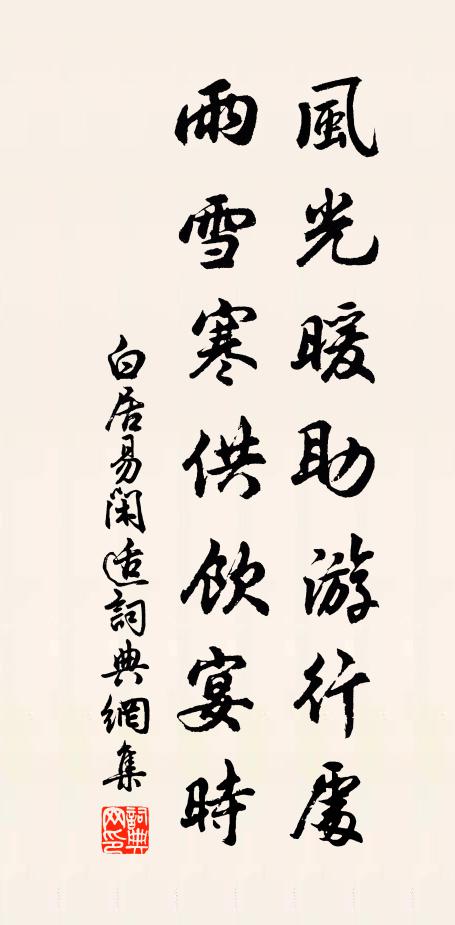 風光暖助游行處
雨雪寒供飲宴時
白居易閑適詞典網集
詞典網印